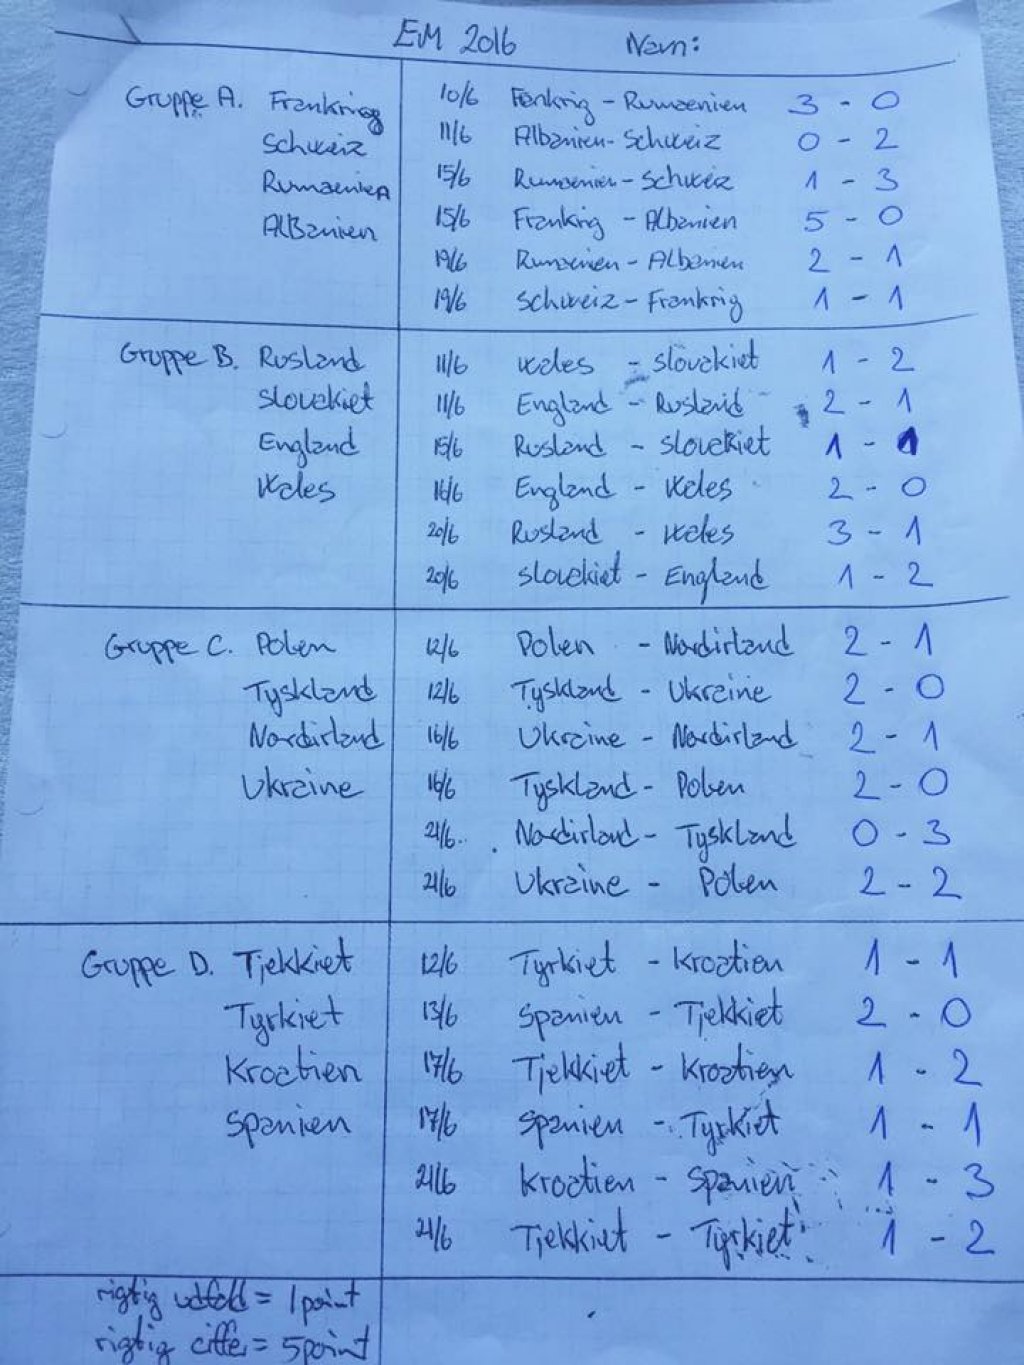 EM 2016 Navn:
Gruppe A. Frankrieg 10/6 Fankrig - Rumaenien 3 - 0
Schweiz 11/6 Albanien - Schweiz 0 - 2
Rumaenien 15/6 Rumaenien - Schweiz 1 - 3
AlBanien 15/6 Frankrig - Albanien 5 - 0
19/6 Rumaenien - Albanien 2 - 1
19/6 Schweiz - Frankrig 1 - 1
Gruppe B. Rusland 11/6 Wales - Slovakiet 1 - 2
Slovakiet 11/6 England - Rusland 2 - 1
England 15/6 Rusland - Slovakiet 1 - 1
Wales 16/6 England - Wales 2 - 0
20/6 Rusland - Wales 3 - 1
20/6 Slovakiet - England 1 - 2
Gruppe C. Polen 12/6 Polen - Nordirland 2 - 1
Tyskland 12/6 Tyskland - Ukraine 2 - 0
Nordirland 16/6 Ukraine - Nordirland 2 - 1
Ukraine 16/6 Tyskland - Polen 2 - 0
21/6 Nordirland - Tyskland 0 - 3
21/6 Ukraine - Polen 2 - 2
Gruppe D. Tjekkiet 12/6 Tyrkiet - Kroatien 1 - 1
Tyrkiet 13/6 Spanien - Tjekkiet 2 - 0
Kroatien 17/6 Tjekkiet - Kroatien 1 - 2
Spanien 17/6 Spanien - Tyrkiet 1 - 1
21/6 Kroatien - Spanien 1 - 3
21/6 Tjekkiet - Tyrkiet 1 - 2
rigtig udfald = 1 point
rigtig ciffer = 5 point